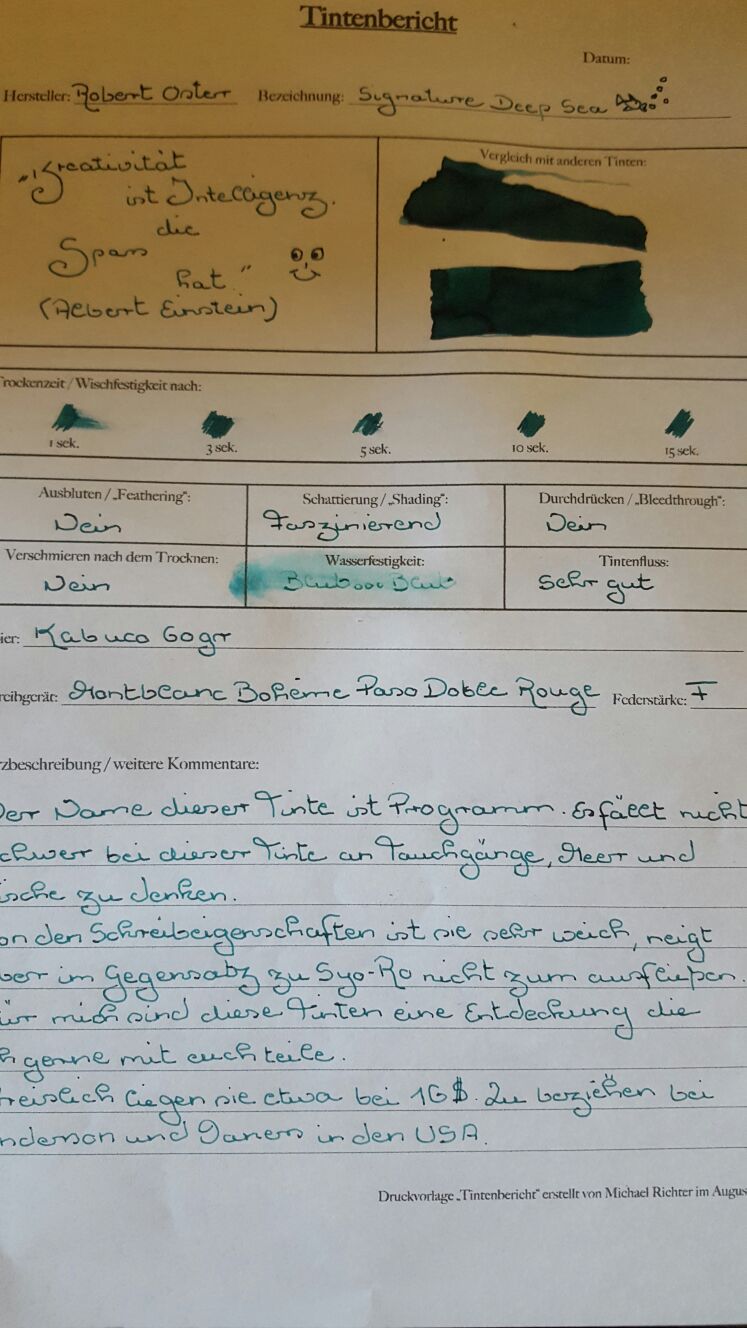 Tintenbericht
Datum:
Hersteller: Robert Oster Bezeichnung: Signature Deep Sea
„Kreativität
ist Intelligenz,
die
Spass
hat."
(Albert Einstein)
Vergleich mit anderen Tinten:
Trockenzeit / Wischfestigkeit nach:
1 sek. 3 sek. 5 sek. 10 sek. 15 sek.
Ausbluten / „Feathering": Schattierung / „Shading": Durchdrücken / „Bleedthrough":
Nein Faszinierend Nein
Verschmieren nach dem Trocknen: Wasserfestigkeit: Tintenfluss:
Nein Blub ooo Blub sehr gut
ier: Kabuco Gogr
reibgerät: Montblanc Bohème Paso Doble Rouge Federstärke: F
zbeschreibung / weitere Kommentare:
Der Name dieser Tinte ist Programm. Es fällt nicht
chwer bei dieser Tinte an Tauchgänge, Meer und
ische zu denken.
on den Schreibeigenschaften ist sie sehr weich, neigt
ber im Gegensatz zu Syo-Ro nicht zum ausfließen.
ür mich sind diese Tinten eine Entdeckung die
h gerne mit euch teile.
reislich liegen sie etwa bei 16 $. Zu beziehen bei
nderson und in den USA.
Druckvorlage „Tintenbericht" erstellt von Michael Richter im Augus